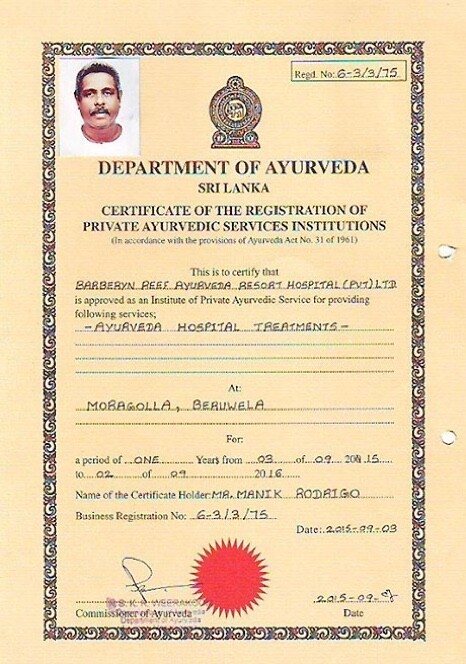 Regd. No: 6-3/3/75
DEPARTMENT OF AYURVEDA
SRI LANKA
CERTIFICATE OF THE REGISTRATION OF
PRIVATE AYURVEDIC SERVICES INSTITUTIONS
(In accordance with the provisions of Ayurveda Act No. 31 of 1961)
This is to certify that
BARBERYN REEF AYURVEDA RESORT HOSPITAL (PVT) LTD
is approved as an Institute of Private Ayurvedic Service for providing
following services;
- AYURVEDA HOSPITAL TREATMENTS -
At:
MORAGOLLA, BERUWELA
For:
a period of ONE Years from 03 of 09 2015
to 02 of 09 2016
Name of the Certificate Holder: MR. MANIK RODRIGO
Business Registration No: 6-3/3/75
Date: 2015-09-03
2015-09-
S. K. R. WEERAKO
Commissioner of Ayurveda
Department of Ayurveda
Date